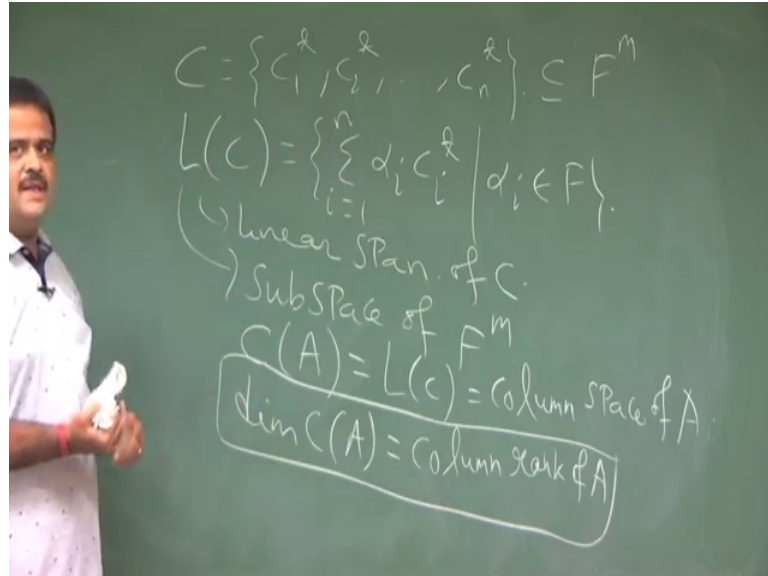 C = {c₁*, c₂*, ..., cₙ*}. ⊆ Fᵐ
L(c) = {∑ᵢ₌₁ⁿ αᵢ cᵢ* | αᵢ ∈ F}.
Linear span. of C.
Subspace of Fᵐ
C(A) = L(c) = Column space of A.
dim C(A) = Column rank of A